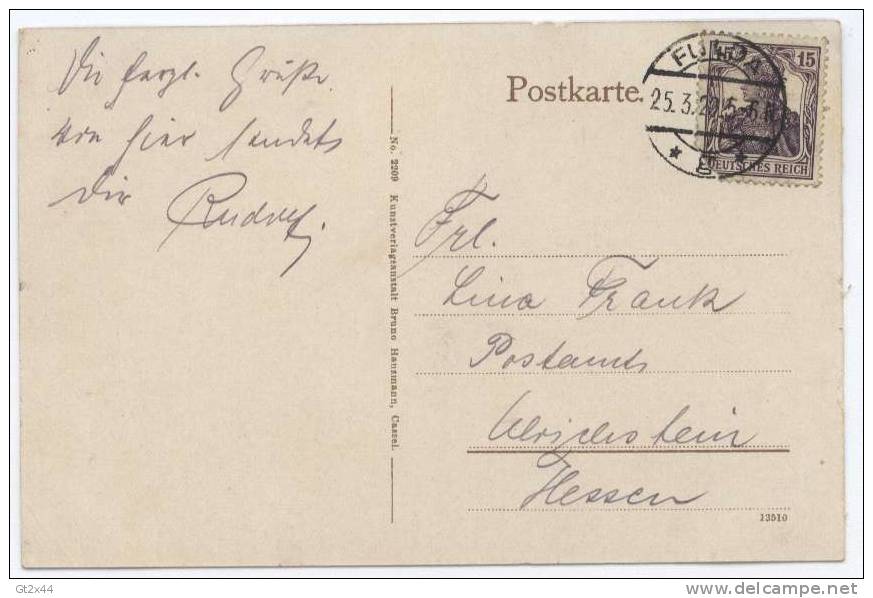 Die herzl. Grüße
von hier sendet
Dir Rudolf
No. 2209 Kunstverlagsanstalt Bruno Hansmann, Cassel.
Postkarte.
FULDA
25.3.20.5-6 N.
* g
15 15
DEUTSCHES REICH
Frl.
Lina Frank
Postamt
Ulrichstein
Hessen
13510
Gt2x44
delcampe.net